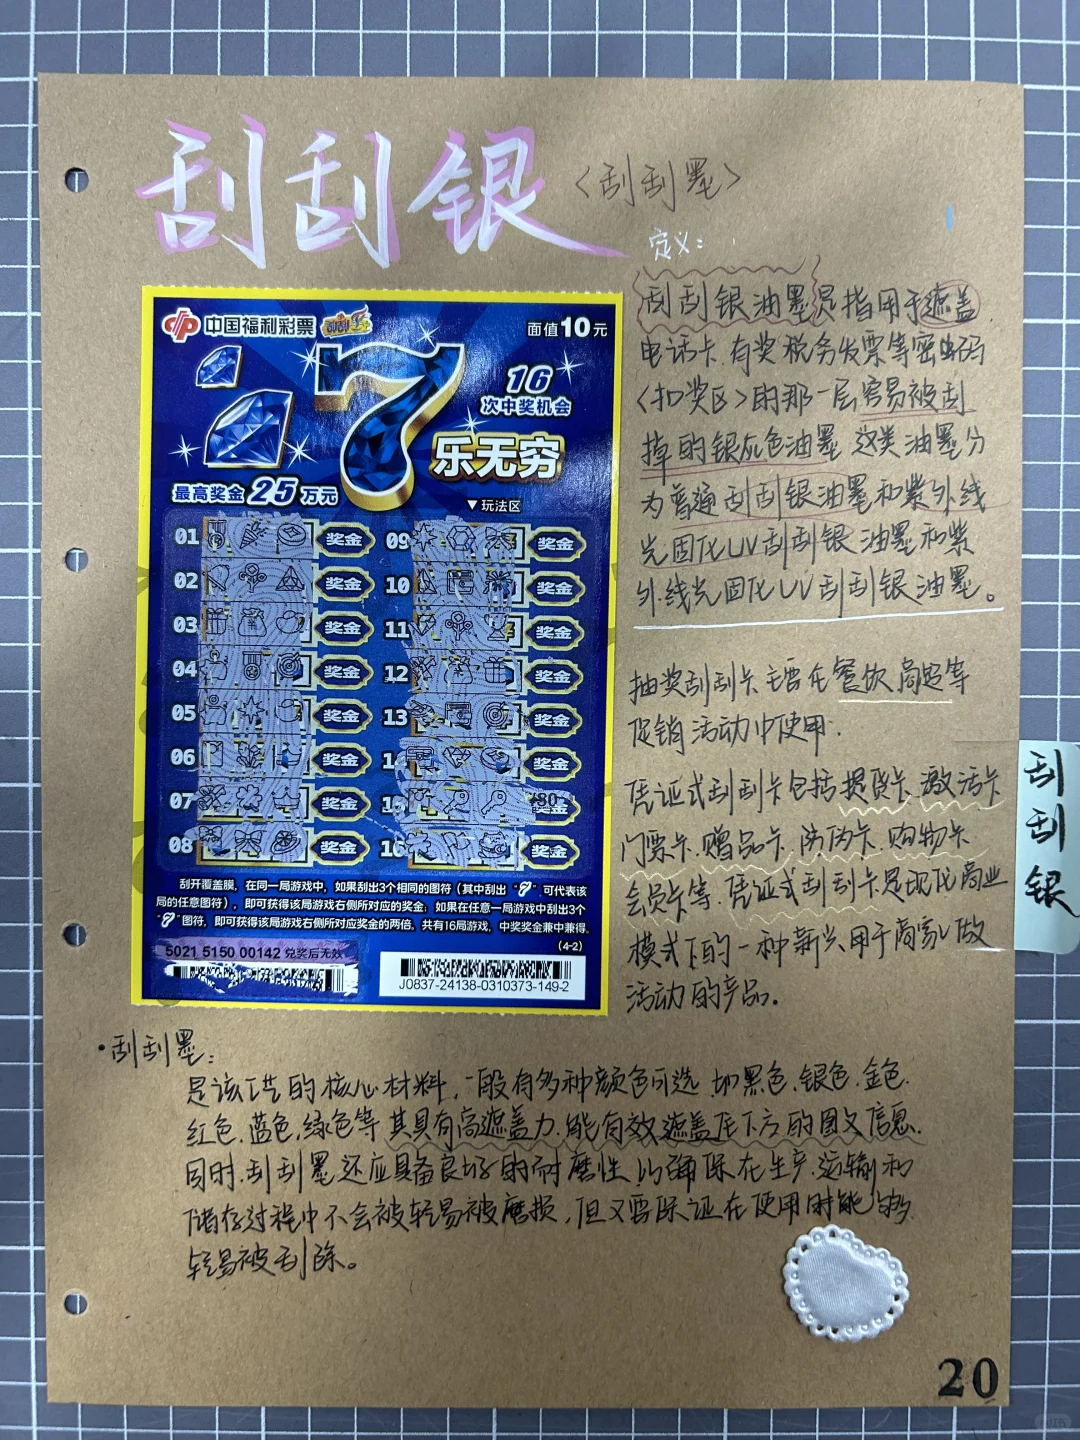 刮刮银
〈刮刮墨〉
定义：
刮刮银油墨是指用于遮盖
电话卡.有奖税务发票等密码
〈扣奖区〉的那一层容易被刮
掉的银灰色油墨 这类油墨分
为普通刮刮银油墨和紫外线
光固化UV刮刮银油墨和紫
外线光固化UV刮刮银油墨。
抽奖刮刮卡主要在餐饮商超等
促销活动中使用.
凭证式刮刮卡包括提货卡 激活卡
门票卡.赠品卡.防伪卡.购物卡
会员卡等.凭证式刮刮卡是现代商业
模式下的一种新兴用于商家做
活动的产品。
刮
刮
银
中国福利彩票 刮刮乐
面值10元
7
乐无穷
16
次中奖机会
最高奖金25万元
▼玩法区
01 奖金 09 奖金
02 奖金 10 奖金
03 奖金 11 奖金
04 奖金 12 奖金
05 奖金 13 奖金
06 奖金 14 奖金
07 奖金 15 奖金
08 奖金 16 奖金
刮开覆盖膜，在同一局游戏中，如果刮出3个相同的图符（其中刮出“7”可代表该
局的任意图符），即可获得该局游戏右侧所对应的奖金；如果在任意一局游戏中刮出3个
“7”图符，即可获得该局游戏右侧所对应奖金的两倍。共有16局游戏，中奖奖金兼中兼得。
(4-2)
5021 5150 00142 兑奖后无效
J0837-24138-0310373-149-2
·刮刮墨：
是该工艺的核心材料，一般有多种颜色可选 如黑色.银色.金色.
红色.蓝色.绿色等 其具有高遮盖力.能有效遮盖住下方的图文信息.
同时.刮刮墨还应具备良好的耐磨性 以确保在生产.运输和
储存过程中不会被轻易被磨损，但又要保证在使用时能够
轻易被刮除。
20